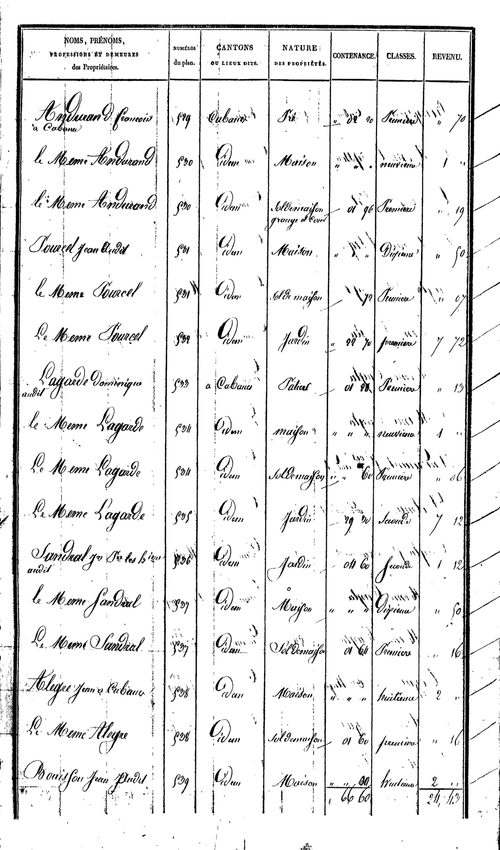 NOMS, PRÉNOMS,
PROFESSIONS ET DEMEURES
des Propriétaires.
NUMÉROS
du plan.
CANTONS
OU LIEUX DITS.
NATURE
DES PROPRIÉTÉS.
CONTENANCE.
CLASSES.
REVENU.
Andurand françois 529 Cabane Pré " 02 20 Première " 70
a Cabane
le Meme Andurand 530 Idem Maison " " " neuvième 1 "
le Meme Andurand 530 Idem Sol de maison 01 96 Première " 19
grange et cour
Pourcel Jean audit 531 Idem Maison " " " Dixieme " 50
le Meme Pourcel 531 Idem Sol de maison " 72 Premiere " 07
Le Meme Pourcel 532 Idem Jardin " 22 70 premiere 7 72
Lagarde Dominique 533 a Cabane Patus 01 28 Premiere " 13
audit
le Meme Lagarde 534 Idem maison " " " neuvieme 1 "
Le Meme Lagarde 534 Idem Sol de maison " " 60 Premiere " 06
Le Meme Lagarde 535 Idem Jardin 29 30 Seconde 7 12
Sandral les 536 Idem Jardin 04 60 Seconde 1 12
audit
le Meme Sandral 537 Idem Maison " " " Dixieme " 50
Le Meme Sandral 537 Idem Sol de maison 01 64 Premiere " 16
Alegre Jean a Cabane 538 Idem Maison " " " huitieme 2 "
Le Meme Alegre 538 Idem Sol de maison 01 60 premiere " 16
Jean audit 539 Idem Maison " " 00 huitieme 2 "
" 66 60 24, 43